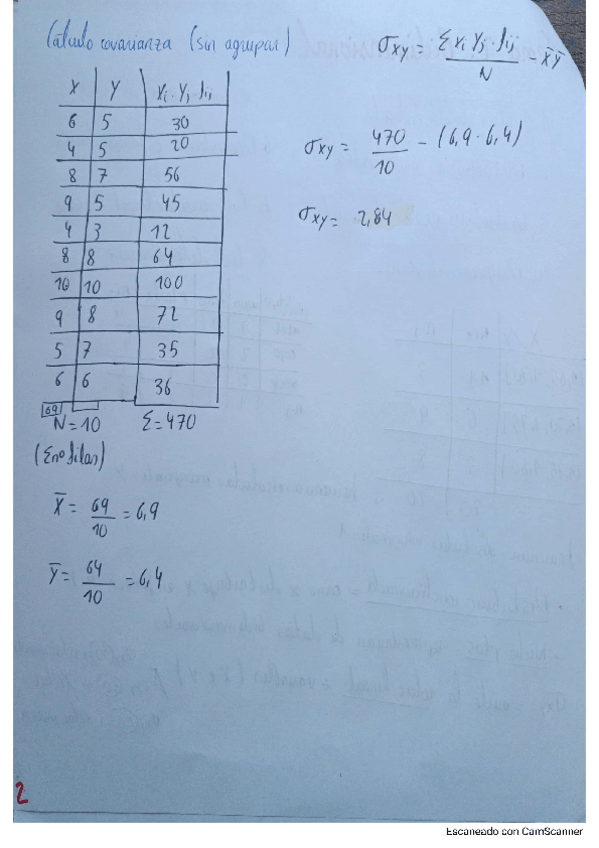 Cálculo covarianza (sin agrupar)
σxy = Σ xi · yj · fij / N - x̄ȳ
X Y xi · yj · fij
6 5 30
4 5 20
8 7 56
9 5 45
4 3 12
8 8 64
10 10 100
9 8 72
5 7 35
6 6 36
69
N = 10 Σ = 470
(Σnº filas)
σxy = 470 / 10 - (6,9 · 6,4)
σxy = 2,84
X̄ = 69 / 10 = 6,9
Ȳ = 64 / 10 = 6,4
2
Escaneado con CamScanner